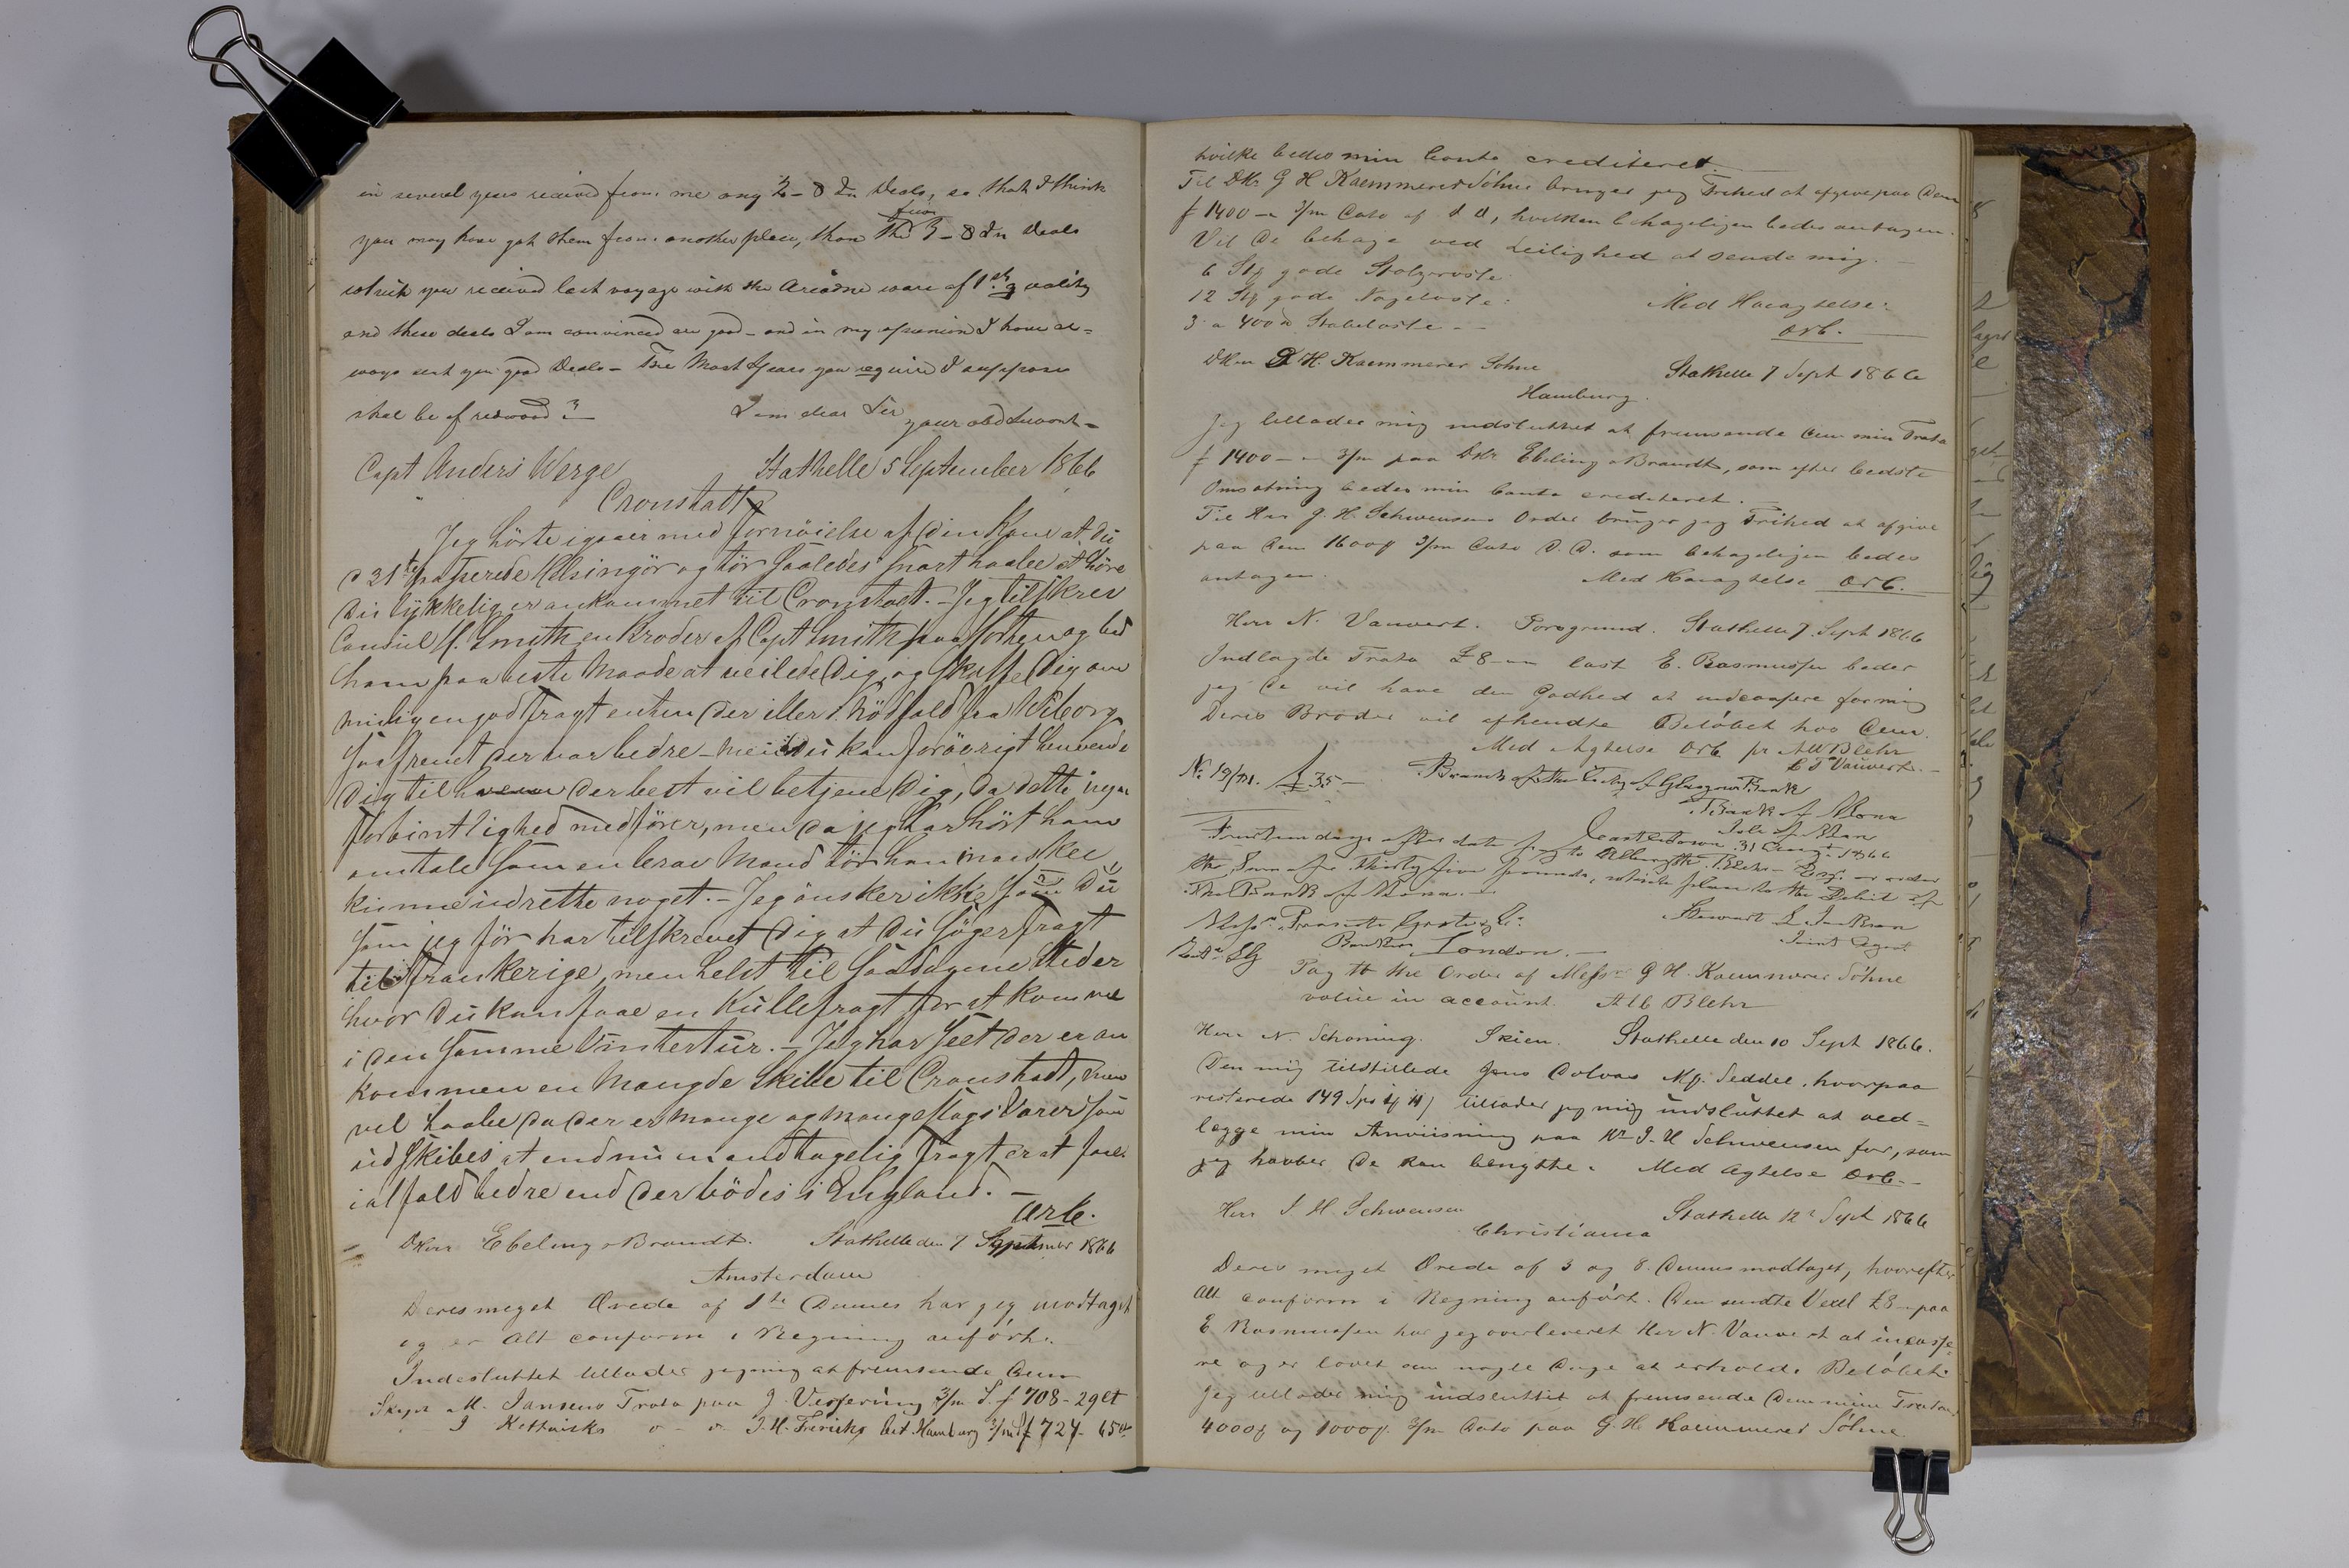 in several years received from me any 2-8 In Deals, so that I think
from
you may have got them from another place, than the 3-8 In Deals
which you received last voyage with the Ariadne ware of 1st quality
and these deals I am convinced are good - and in my opinion I have al=
ways sent you good Deals - The Mast Spars you required I suppose
shal be of redwood? I am dear Sir your obd Servant -
Capt Anders Werge Stathelle 5 September 1866
Cronstatt
Jeg hörte igaaer med fornöielse af din Kone at du
d 31te passerede Helsingör og tör saaledes snart haabe at höre
du lykkelig er ankommet til Cronstadt. - Jeg tilskrev
Consul H. Smith en Broder af Capt Smith paa Horten og bed
ham paa beste Maade at veilede Dig, og skaffe Dig om
mulig en god Fragt enten der eller i nödfald fra Wiborg
saafremt der var bedre - men du kan foröovrigt henvende
dig til hvem der best vil betjene Dig, da dette ingen
forbintlighed medförer, men da jeg har hört ham
omtale som en brav Mand tör han maaskee
kunne udrette noget. - Jeg önsker ikke som du
som jeg för har tilskrevet Dig at du söger Fragt
til Frankerige, men helst til saadagene Steder
hvor du kan faae en Kullefragt for at komme
i den samme Vintertur. - Jeg har seet der er an
kommen en Mangde Skibe til Cronstadt, men
vel haabe da der er mange og mangeslags Varer som
udskibes at endnu en andtagelig Fragt er at faae
ialfald bedre end der bödes i England. -
Arb.
DHerr Ebeling & Brandt. Stathelle den 7 September 1866
Amsterdam
Deres meget Ærede af 1ste Dennes har jeg modtaget
og er Alt conform i Regning anfört.
Indesluttet tillader jeg mig at fremsende Dem
Skipr M. Jansens Trata paa J. Vissering 3/m d. f 708-29 ct
J Kettwicks o - o J. H. Frericks bet. Hamburg 3/m d f 727-65 ct
hvilke bedes min Conto crediteret.
Til DHr G H Kaemmerer Söhne bruger jeg Frihed at afgive paa Dem
f 1400 - a 3/m Dato af d. d, hvilken behageligen bedes antagen.
Vil De behage ved Leilighed at sende mig. -
6 Stk gode Stolzeroste
12 Stk gode Nogeloste:
3 a 400 Stabeloste - - Med Høiagtelse:
Arb.
DHrn G H. Kaemmerer Söhne Stathelle 7 Sept 1866
Hamburg.
Jeg tillader mig indsluttet at fremsende Dem min Trata
f 1400 - - 3/m paa DHr Ebeling & Brandt, som efter bedste
Omsætning bedes min Conto crediteret. -
Til Herr J. H. Schwensens Order bruger jeg Frihed at afgive
paa Dem 1600 3/m Dato D. D. som behageligen bedes
antagen. Med Høiagtelse Arb.
Herr N. Vauvert. Porsgrund. Stathelle 7. Sept 1866
Indlagde Trata £8 - - last E. Rasmussen beder
jeg De vil have den Godhed at indcassere for mig
Deres Broder vil afhendte Belöbet hos Dem.
Med Agtelse Arb pr Alb Blehr
L T Vauvert. -
£35 - Branch of the City of Glasgow Bank
Bank of Mona
Isle of Man
Castletown 31 Augt 1866
Fourteen days after date pay to Albregth Blehr - Esq. or order
the Sum of Thirty five pounds, which place to the Debit of
The Bank of Mona. -
Stewart
Joint Agent
Bankers London. -
Pay to the Order of Messr G H. Kaemmerer Söhne
value in account. Alb Blehr
Herr N. Schoning. Skien. Stathelle den 10 Sept 1866.
Den mig tilstillede Jens Dolvas Seddel, hvorpaa
resterede 149 Spd tillader jeg mig indsluttet at ved=
lægge min Anviisning paa Hr J. H Schwensen for, som
jeg haaber De kan benytte. Med Agtelse Arb. -
Herr J. H. Schwensen Stathelle 12t Sept 1866
Christiania
Deres meget Ærede af 3 og 8. Dennes modtaget, hvorefter
Alt conform i Regning anfört. Den sendte Vexel £8 - paa
E Rasmussen har jeg overleveret Herr N. Vauvert at incasse=
re og er lovet om nogle Dage at erholde Belöbet.
Jeg tillader mig indsluttet at fremsende Dem mine Tratar
4000 og 1000. 3/m Dato paa G. H. Kaemmerer Söhne.